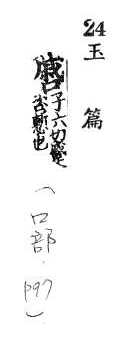 24 玉篇
子六切
咨慙也
(口部. p97)